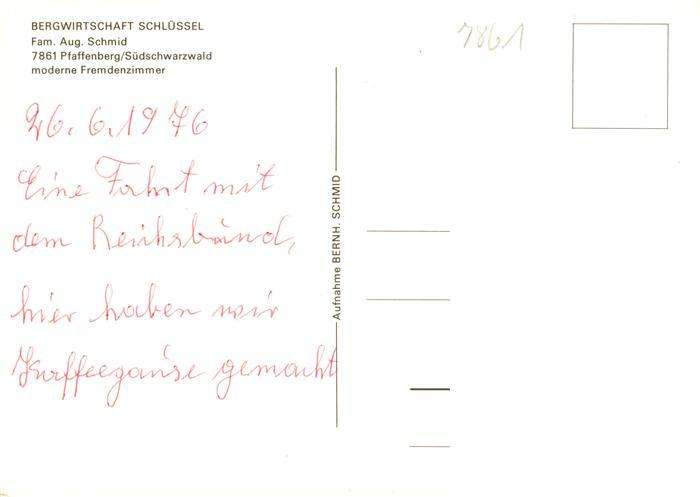 BERGWIRTSCHAFT SCHLÜSSEL
Fam. Aug. Schmid
7861 Pfaffenberg/Südschwarzwald
moderne Fremdenzimmer
7861
26.6.1976
Eine Fahrt mit
dem Reichsbund,
hier haben wir
gemacht
Aufnahme BERNH. SCHMID